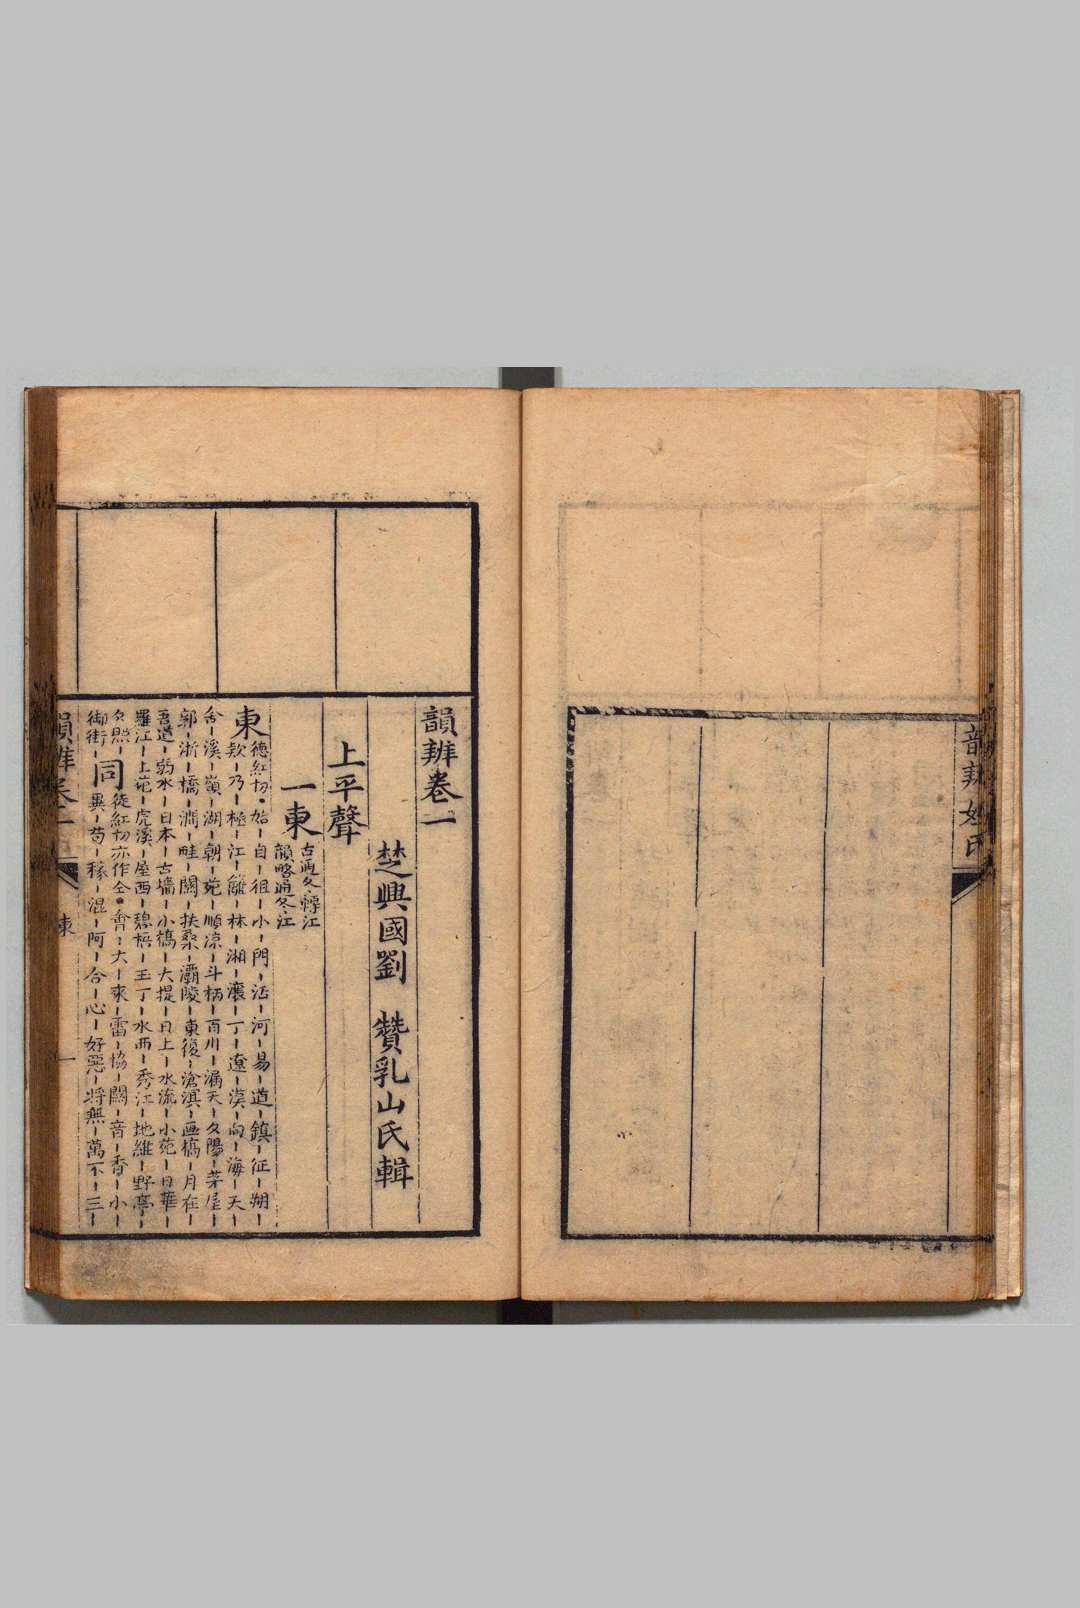 韻辨姓氏
韻辨卷一
楚興國劉　贊乳山氏輯
上平聲
一東
古通冬轉江
韻略通冬江
東
德紅切・始－自－徂－小－門－活－河－易－道－鎮－征－朔－
欸－乃－極－江－籬－林－湘－瀼－丁－遼－漠－向－海－天－
舍－溪－嶺－湖－朝－苑－順涼－斗柄－百川－漏天－夕陽－茅屋－
郭－浙－橋－澗－畦－關－扶桑－灞陵－東復－滄溟－畫橋－月在－
吾道－弱水－日本－古墻－小橋－大提－日上－水流－小苑－日華－
羅江－上苑－虎溪－屋西－碧梧－玉丁－水西－秀江－地維－野亭－
夕照－
御街－
同
徒紅切亦作仝・會－大－來－雷－協－關－音－香－小－
異－苟－稼－混－阿－合－心－好惡－將無－萬不－三－
韻辨卷一
東
一